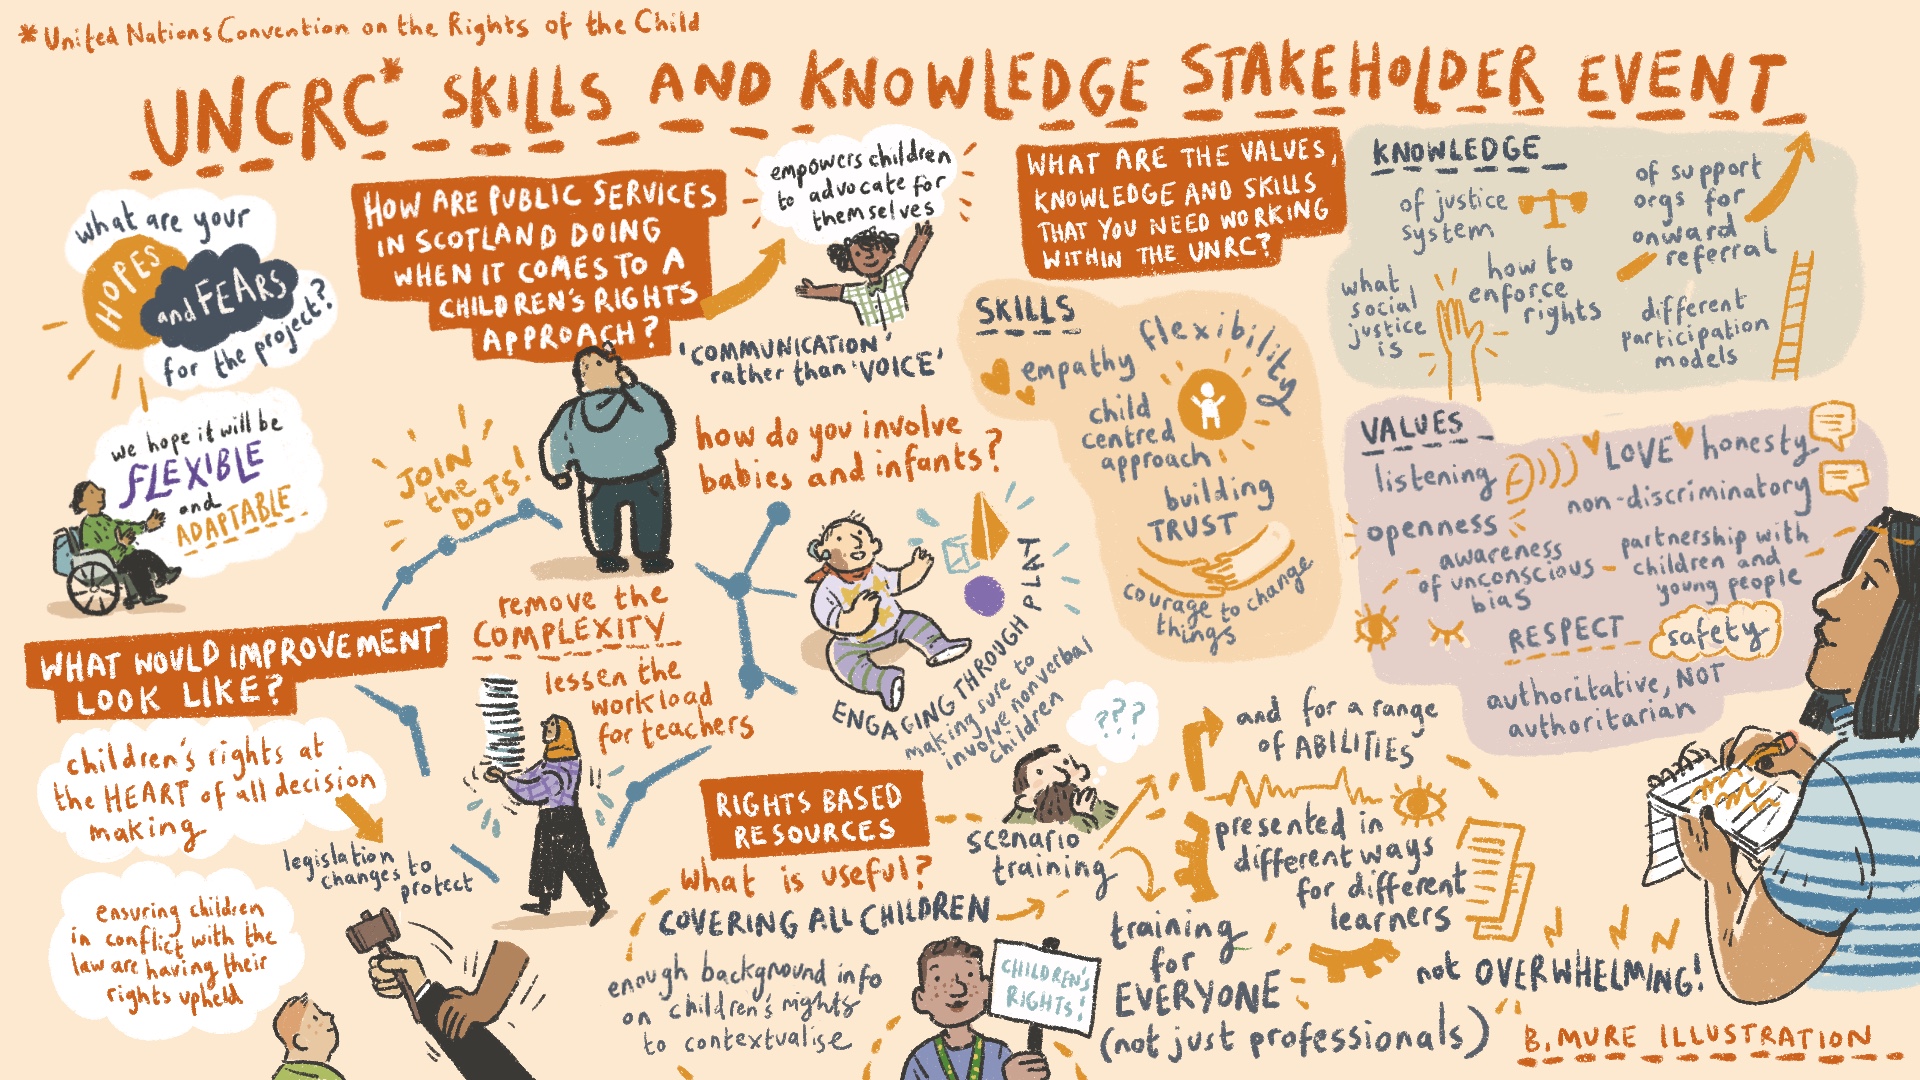 *United Nations Convention on the Rights of the Child
UNCRC* SKILLS AND KNOWLEDGE STAKEHOLDER EVENT
what are your
HOPES
and FEARS
for the project?
we hope it will be
FLEXIBLE
and
ADAPTABLE
HOW ARE PUBLIC SERVICES
IN SCOTLAND DOING
WHEN IT COMES TO A
CHILDREN'S RIGHTS
APPROACH?
empowers children
to advocate for
themselves
'COMMUNICATION'
rather than 'VOICE'
JOIN
the
DOTS!
how do you involve
babies and infants?
ENGAGING THROUGH PLAY
making sure to
involve nonverbal
children
WHAT WOULD IMPROVEMENT
LOOK LIKE?
remove the
COMPLEXITY
lessen the
workload
for teachers
children's rights at
the HEART of all decision
making
legislation
changes to
protect
ensuring children
in conflict with the
law are having their
rights upheld
WHAT ARE THE VALUES,
KNOWLEDGE AND SKILLS
THAT YOU NEED WORKING
WITHIN THE UNRC?
SKILLS
empathy
flexibility
child
centred
approach
building
TRUST
courage to change
things
KNOWLEDGE
of justice
system
of support
orgs for
onward
referral
what
social
justice
is
how to
enforce
rights
different
participation
models
VALUES
listening
LOVE
honesty
non-discriminatory
openness
awareness
of unconscious
bias
partnership with
children and
young people
RESPECT
safety
authoritative, NOT
authoritarian
RIGHTS BASED
RESOURCES
what is useful?
COVERING ALL CHILDREN
enough background info
on children's rights
to contextualise
CHILDREN'S
RIGHTS!
???
scenario
training
training
for
EVERYONE
(not just professionals)
and for a range
of ABILITIES
presented in
different ways
for different
learners
not OVERWHELMING!
B. MURE ILLUSTRATION